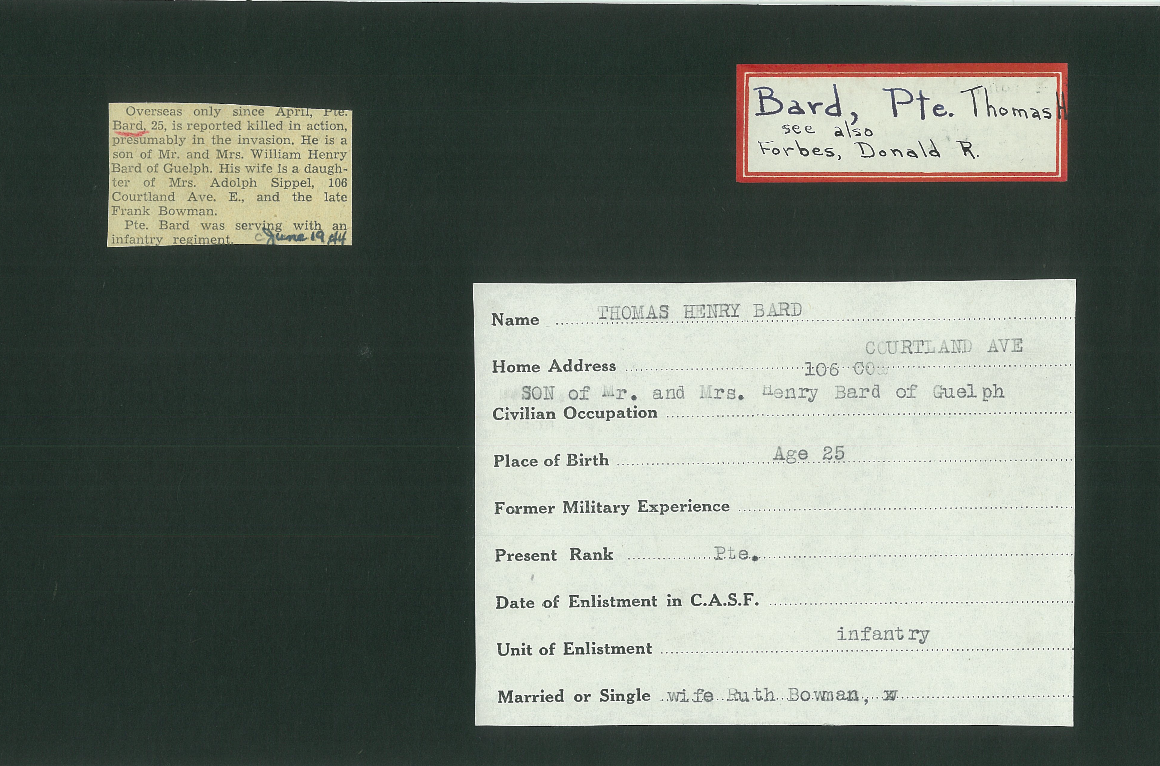 Overseas only since April, Pte.
Bard, 25, is reported killed in action,
presumably in the invasion. He is a
son of Mr. and Mrs. William Henry
Bard of Guelph. His wife is a daugh-
ter of Mrs. Adolph Sippel, 106
Courtland Ave. E., and the late
Frank Bowman.
Pte. Bard was serving with an
infantry regiment. June 19/44
Bard, Pte. Thomas H
see also
Forbes, Donald R.
Name THOMAS HENRY BARD
COURTLAND AVE
Home Address 106 CO
SON of Mr. and Mrs. Henry Bard of Guelph
Civilian Occupation
Place of Birth Age 25
Former Military Experience
Present Rank Pte.
Date of Enlistment in C.A.S.F.
infantry
Unit of Enlistment
Married or Single wife Ruth Bowman,